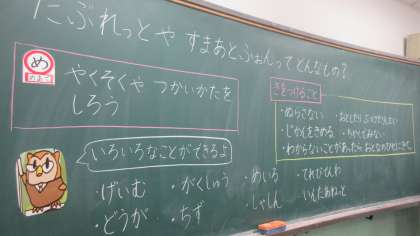 たぶれっと や すまあとふぉんってどんなもの？
め
めあて
やくそくや つかいかたを
しろう
きをつけること
・ぬらさない ・おとしたり、ぶつけたりしない
・じかんをきめる ・ちかくでみない
・わからないことがあったら おとなのひとにきく。
いろいろなことができるよ
・げいむ ・がくしゅう ・めいろ ・てれびでんわ
・どうが ・ちず ・しゃしん ・いんたあねっと